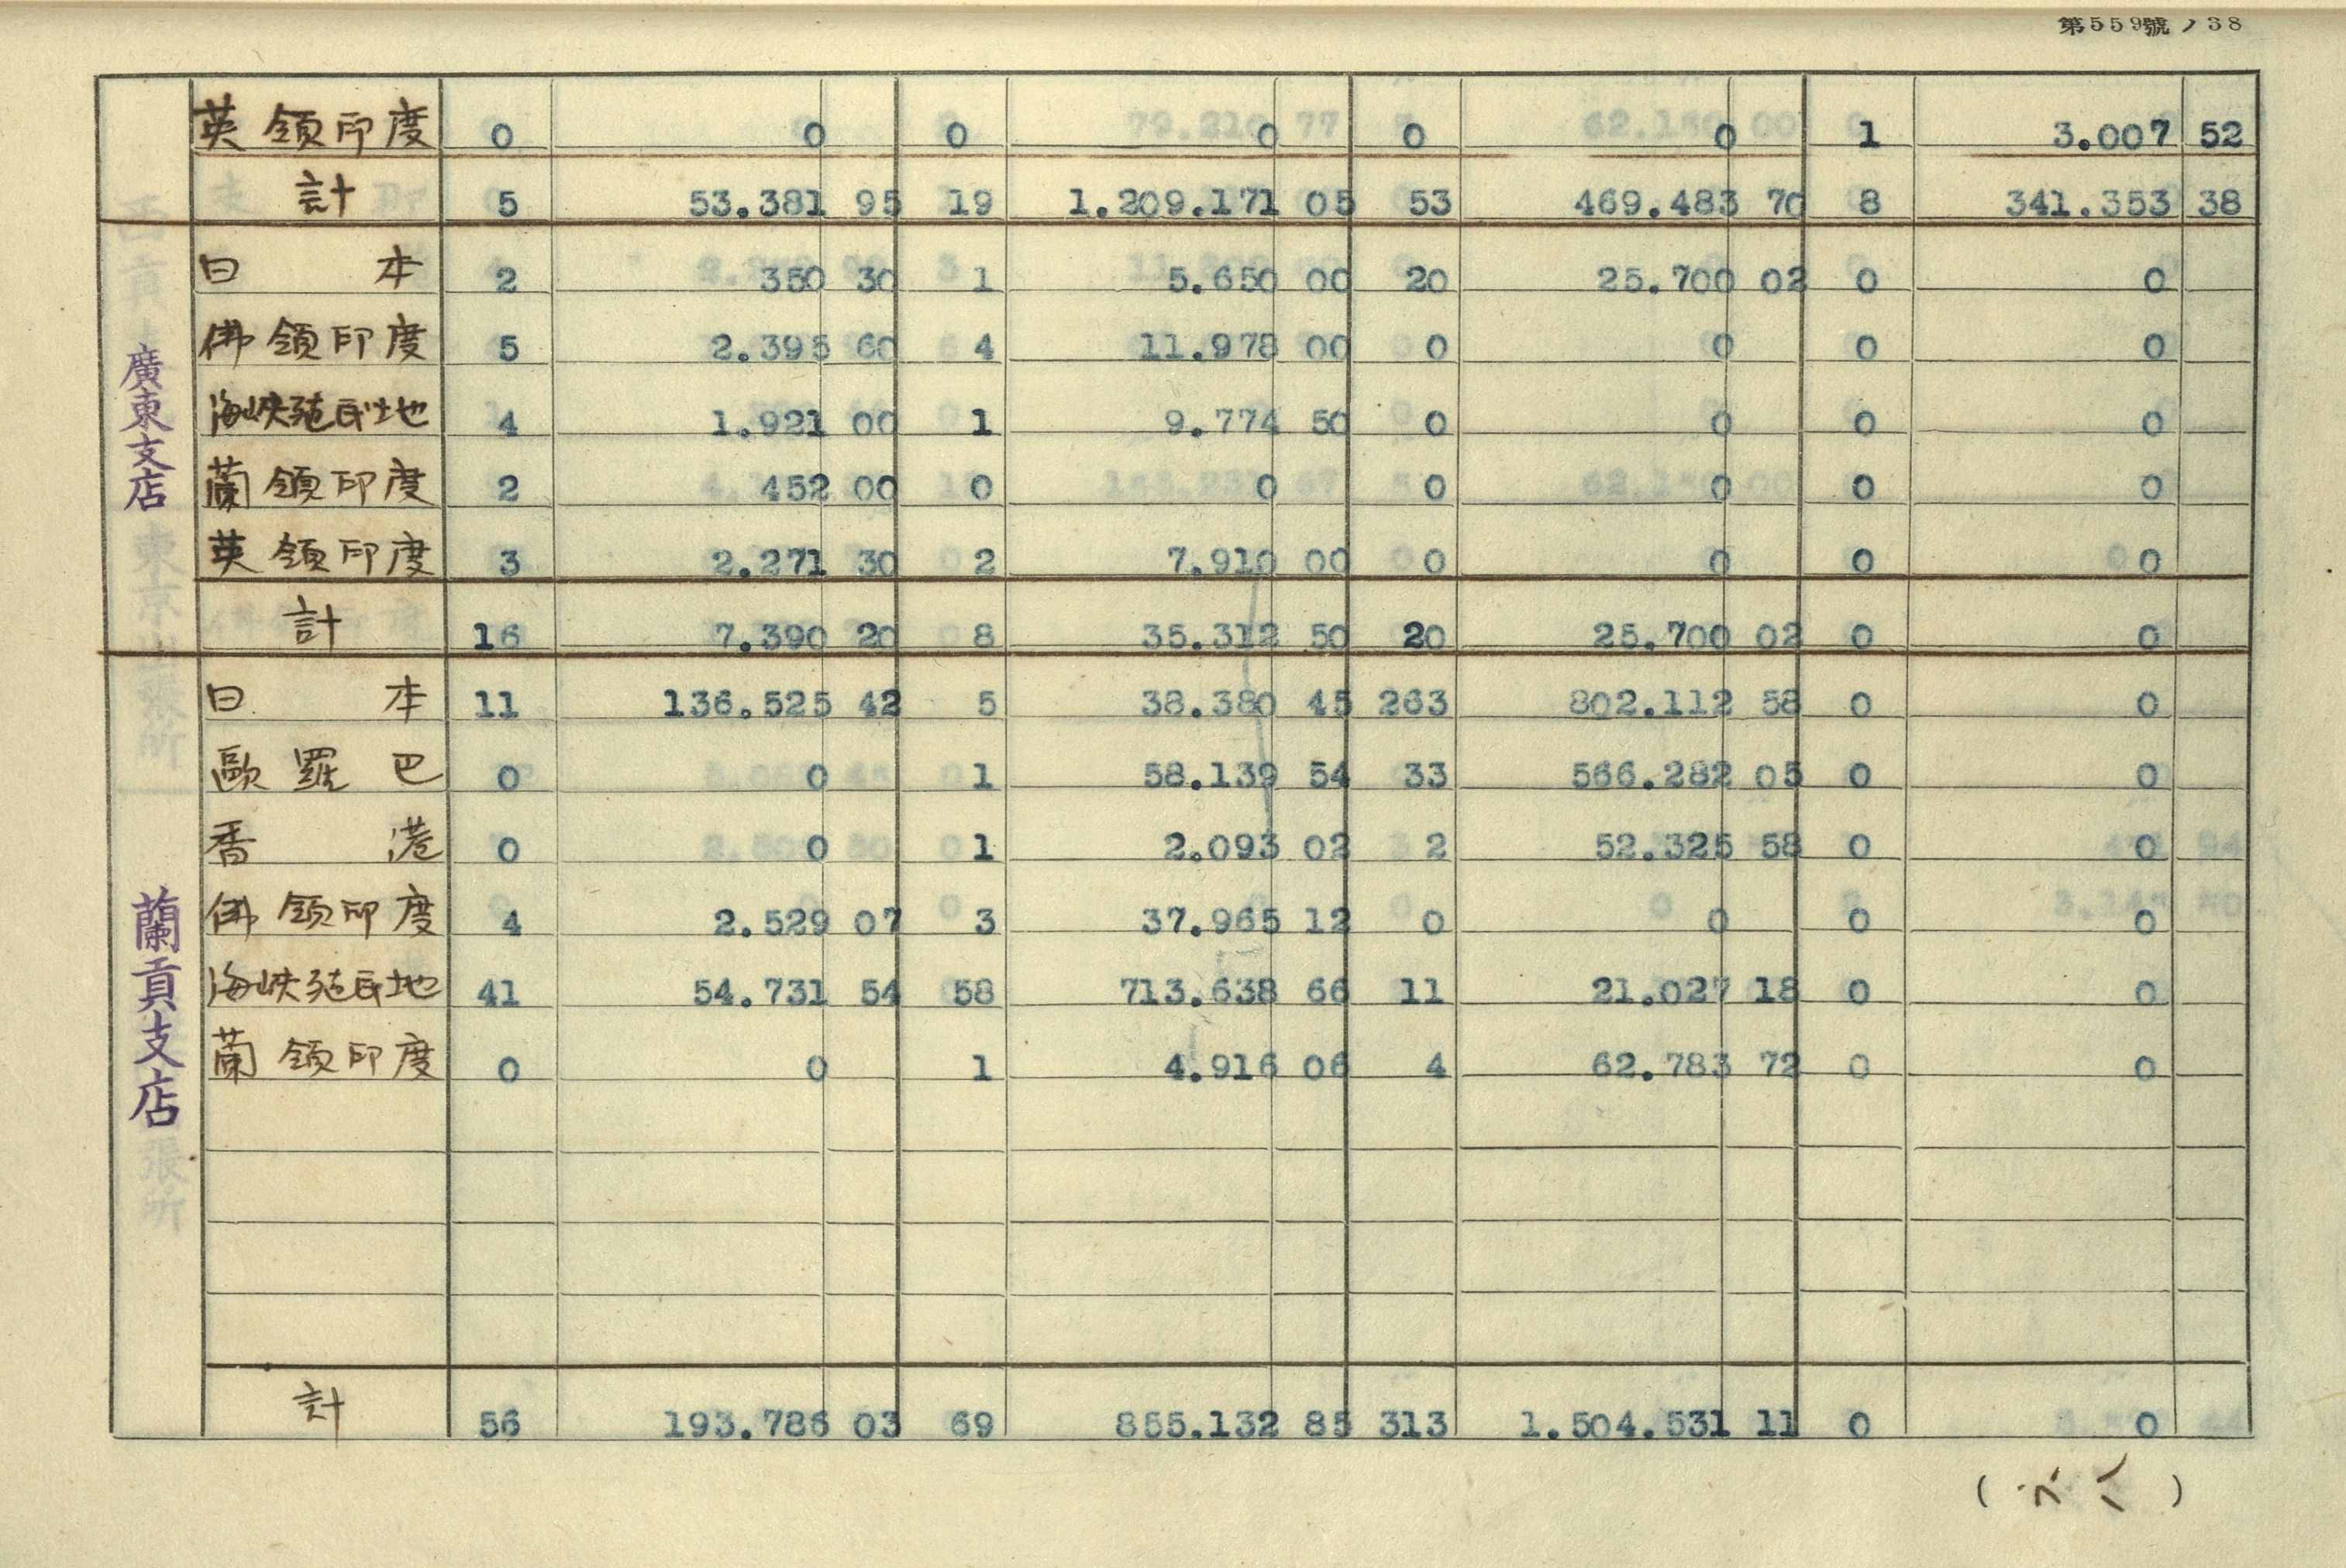 第559號ノ38
英領印度 0 0 0 0 0 0 1 3.007 52
計 5 53.381 95 19 1.209.171 05 53 469.483 70 8 341.353 38
廣東支店
日本 2 350 30 1 5.650 00 20 25.700 02 0 0
佛領印度 5 2.395 60 4 11.978 00 0 0 0 0
海峽殖民地 4 1.921 00 1 9.774 50 0 0 0 0
蘭領印度 2 452 00 0 0 0 0 0 0
英領印度 3 2.271 30 2 7.910 00 0 0 0 0
計 16 7.390 20 8 35.312 50 20 25.700 02 0 0
蘭貢支店
日本 11 136.525 42 5 38.380 45 263 802.112 58 0 0
歐羅巴 0 0 1 58.139 54 33 566.282 05 0 0
香港 0 0 1 2.093 02 2 52.325 58 0 0
佛領印度 4 2.529 07 3 37.965 12 0 0 0 0
海峽殖民地 41 54.731 54 58 713.638 66 11 21.027 18 0 0
蘭領印度 0 0 1 4.916 06 4 62.783 72 0 0
計 56 193.786 03 69 855.132 85 313 1.504.531 11 0 0